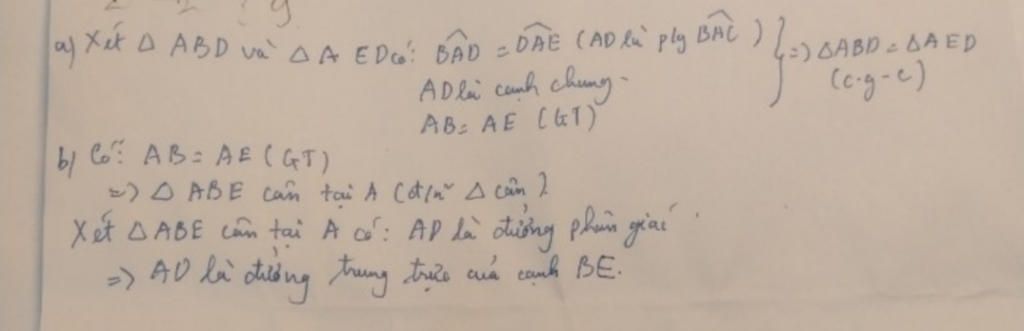 a) Xét Δ ABD và Δ AED có: B̂AD = D̂AE (AD là p/g B̂AC) } => ΔABD = ΔAED
AD là cạnh chung (c-g-c)
AB = AE (GT)
b) Có: AB = AE (GT)
=> Δ ABE cân tại A (đ/n Δ cân)
Xét Δ ABE cân tại A có: AD là đường phân giác
=> AD là đường trung trực của cạnh BE.